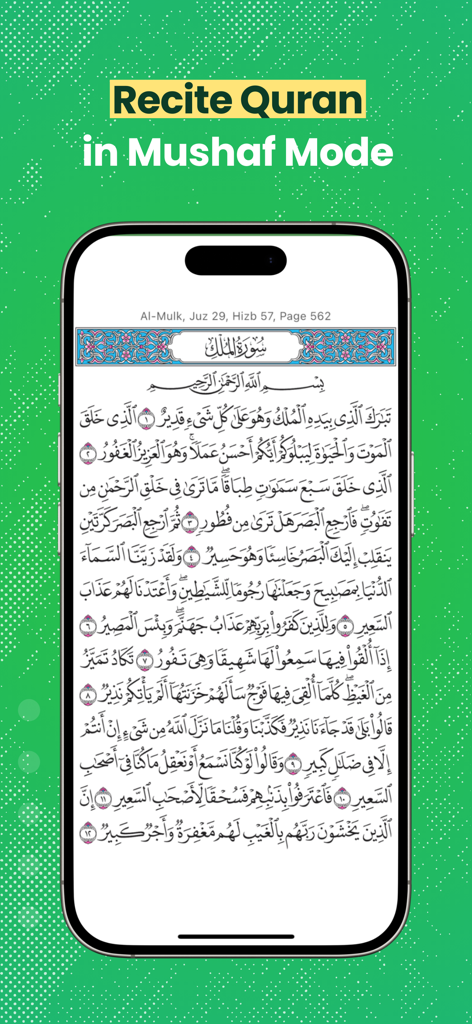 Recite Quran
in Mushaf Mode
Al-Mulk, Juz 29, Hizb 57, Page 562
سُورَةُ المُلْكِ
بِسْمِ ٱللَّهِ ٱلرَّحْمَٰنِ ٱلرَّحِيمِ
تَبَٰرَكَ ٱلَّذِى بِيَدِهِ ٱلْمُلْكُ وَهُوَ عَلَىٰ كُلِّ شَىْءٍ قَدِيرٌ ١ ٱلَّذِى خَلَقَ
ٱلْمَوْتَ وَٱلْحَيَوٰةَ لِيَبْلُوَكُمْ أَيُّكُمْ أَحْسَنُ عَمَلًا ۚ وَهُوَ ٱلْعَزِيزُ ٱلْغَفُورُ ٢
ٱلَّذِى خَلَقَ سَبْعَ سَمَٰوَٰتٍ طِبَاقًا ۖ مَّا تَرَىٰ فِى خَلْقِ ٱلرَّحْمَٰنِ مِن
تَفَٰوُتٍ ۖ فَٱرْجِعِ ٱلْبَصَرَ هَلْ تَرَىٰ مِن فُطُورٍ ٣ ثُمَّ ٱرْجِعِ ٱلْبَصَرَ كَرَّتَيْنِ
يَنقَلِبْ إِلَيْكَ ٱلْبَصَرُ خَاسِئًا وَهُوَ حَسِيرٌ ٤ وَلَقَدْ زَيَّنَّا ٱلسَّمَآءَ
ٱلدُّنْيَا بِمَصَٰبِيحَ وَجَعَلْنَٰهَا رُجُومًا لِّلشَّيَٰطِينِ ۖ وَأَعْتَدْنَا لَهُمْ عَذَابَ
ٱلسَّعِيرِ ٥ وَلِلَّذِينَ كَفَرُوا۟ بِرَبِّهِمْ عَذَابُ جَهَنَّمَ ۖ وَبِئْسَ ٱلْمَصِيرُ ٦
إِذَآ أُلْقُوا۟ فِيهَا سَمِعُوا۟ لَهَا شَهِيقًا وَهِىَ تَفُورُ ٧ تَكَادُ تَمَيَّزُ
مِنَ ٱلْغَيْظِ ۖ كُلَّمَآ أُلْقِىَ فِيهَا فَوْجٌ سَأَلَهُمْ خَزَنَتُهَآ أَلَمْ يَأْتِكُمْ نَذِيرٌ ٨
قَالُوا۟ بَلَىٰ قَدْ جَآءَنَا نَذِيرٌ فَكَذَّبْنَا وَقُلْنَا مَا نَزَّلَ ٱللَّهُ مِن شَىْءٍ إِنْ أَنتُمْ
إِلَّا فِى ضَلَٰلٍ كَبِيرٍ ٩ وَقَالُوا۟ لَوْ كُنَّا نَسْمَعُ أَوْ نَعْقِلُ مَا كُنَّا فِىٓ أَصْحَٰبِ
ٱلسَّعِيرِ ١٠ فَٱعْتَرَفُوا۟ بِذَنۢبِهِمْ فَسُحْقًا لِّأَصْحَٰبِ ٱلسَّعِيرِ ١١ إِنَّ
ٱلَّذِينَ يَخْشَوْنَ رَبَّهُم بِٱلْغَيْبِ لَهُم مَّغْفِرَةٌ وَأَجْرٌ كَبِيرٌ ١٢